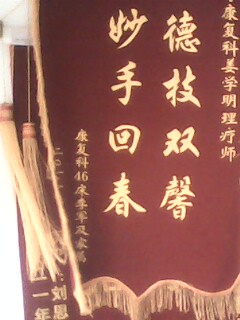 康复科姜学明理疗师
德技双馨
妙手回春
康复科46床李军及家属
二〇一
刘恩
一年